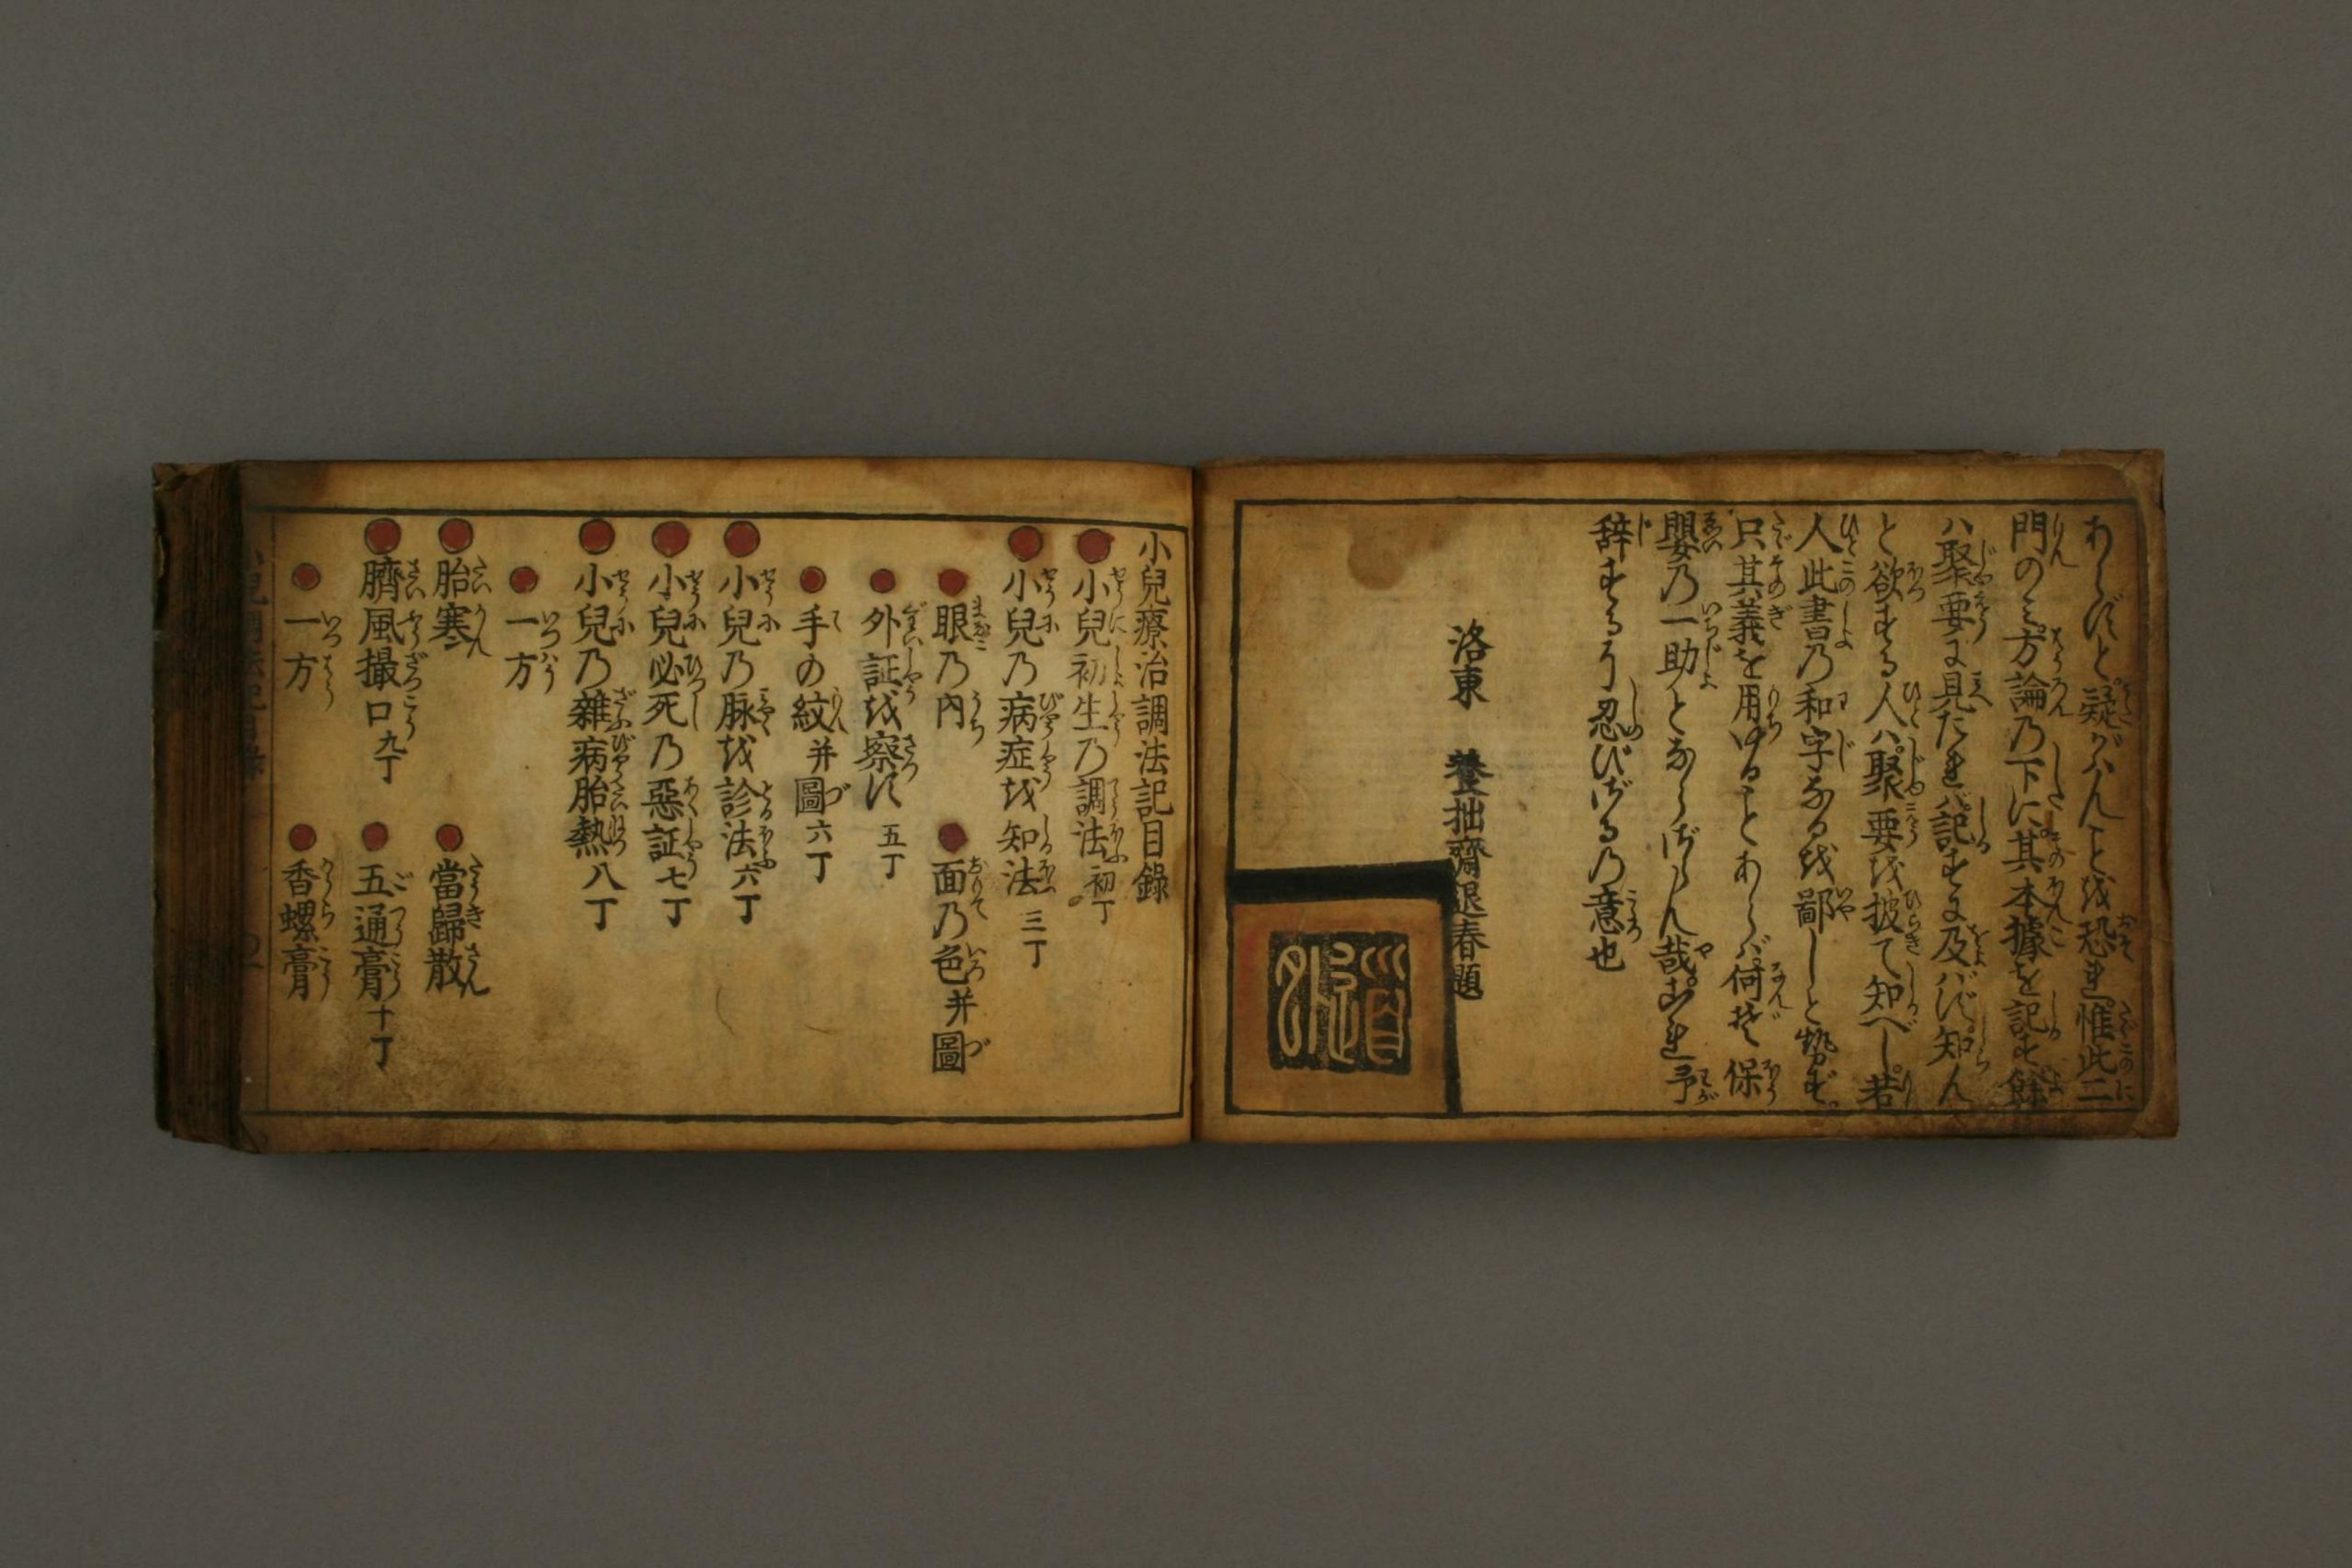 あらずと疑がハんことを恐れ惟此二
門のミ方論乃下に其本據を記す餘
ハ聚要に見たれバ記すに及バず知ん
と欲する人ハ聚要を披て知べし若
人此書乃和字なるを鄙しと勢ず
只其義を用ゆることあらバ何ぞ保
嬰乃一助とならざらん哉これ予
辞するに忍びざる乃意也
洛東 養拙齋退春題
小兒療治調法記目錄
小兒初生乃調法初丁
小兒乃病症を知法三丁
眼乃内 面乃色并圖
外証を察す五丁
手の紋并圖六丁
小兒乃脉を診法六丁
小兒必死乃惡証七丁
小兒乃雜病胎熱八丁
一方
胎寒 當歸散
臍風撮口九丁 五通膏十丁
一方 香螺膏